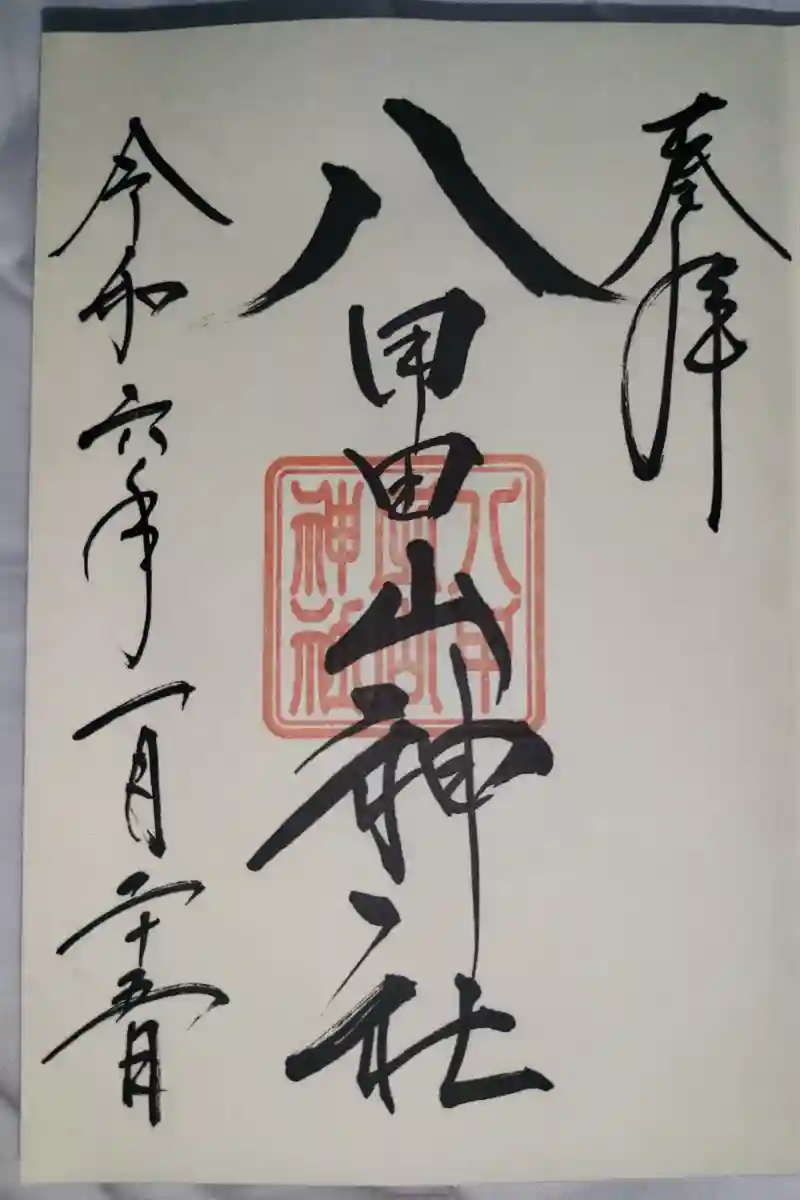 奉拝
八甲田山神社
八甲
神社
令和六年一月二十五日